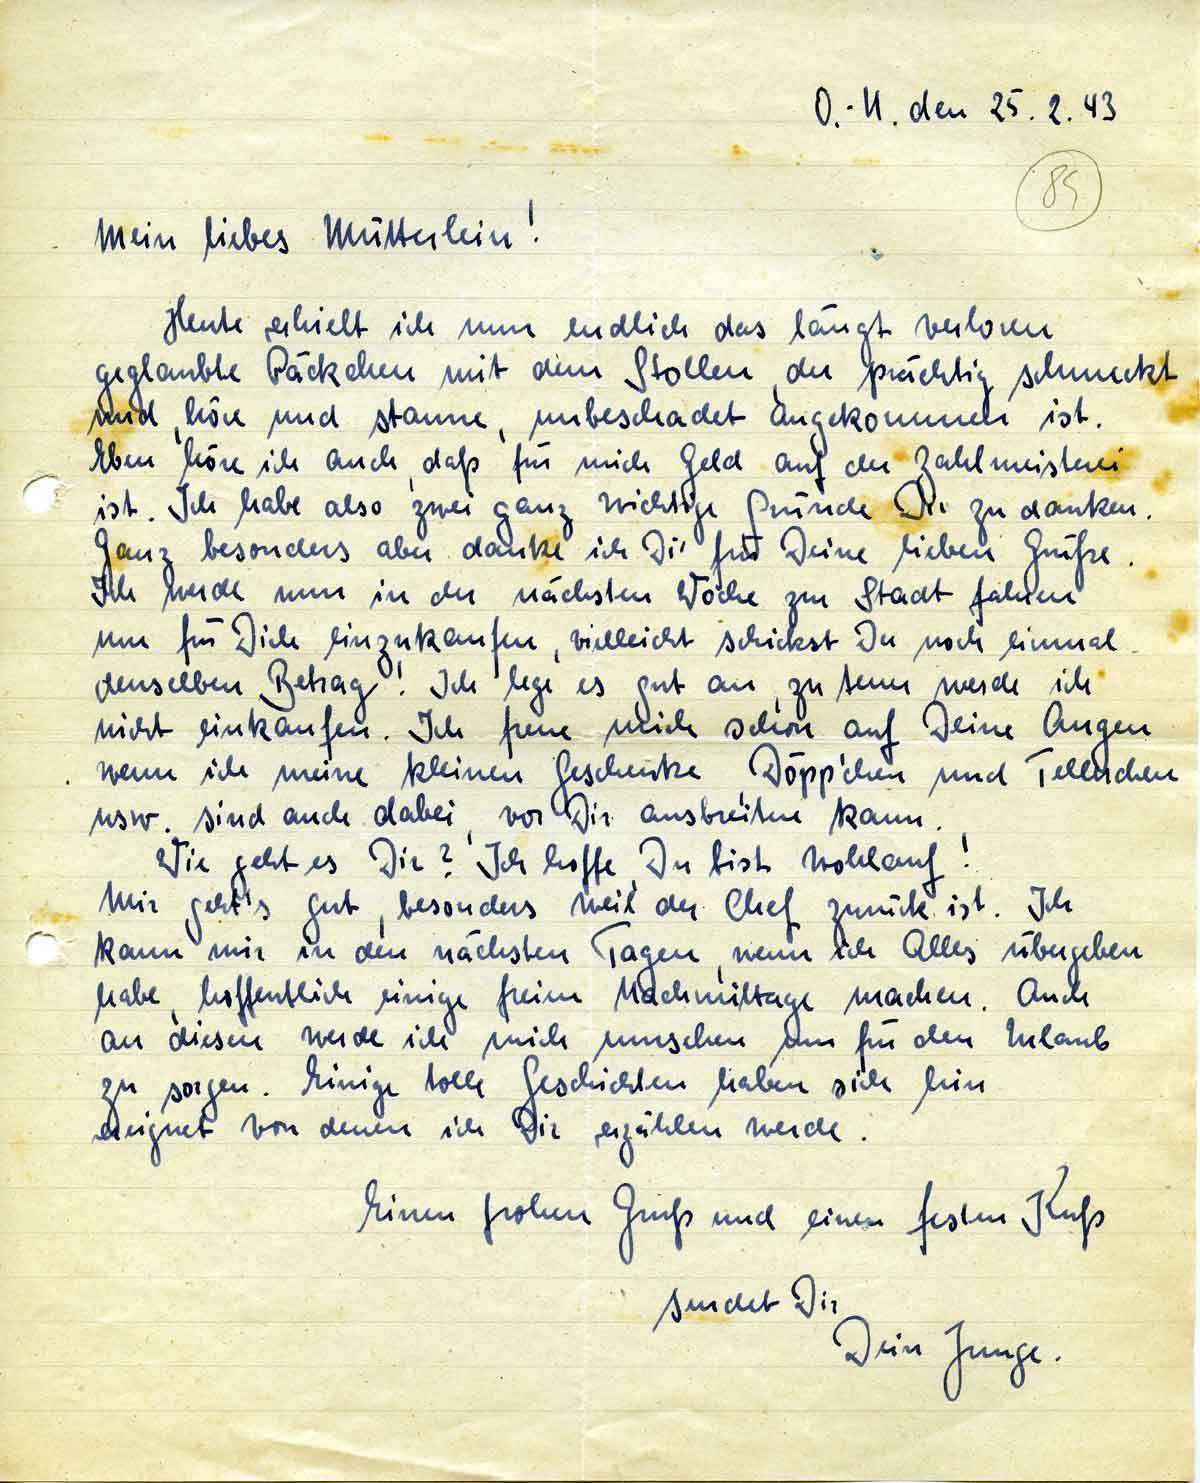 O.-U. den 25.2.43
85
Mein liebes Mütterlein!
Heute erhielt ich nun endlich das längt verloren
geglaubte Päckchen mit dem Stollen, der prächtig schmeckt
und, höre und staune, unbeschadet angekommen ist.
Eben höre ich auch, daß für mich Geld auf der Zahlmeisterei
ist. Ich habe also zwei ganz wichtige Gründe Dir zu danken.
Ganz besonders aber danke ich Dir für Deine lieben Grüße.
Ich werde nun in der nächsten Woche zur Stadt fahren
um für Dich einzukaufen, vielleicht schickst Du noch einmal
denselben Betrag! Ich lege es gut an, zu teuer werde ich
nicht einkaufen. Ich freue mich schon auf Deine Augen
wenn ich meine kleinen Geschenke, Döpp'chen und Tellerchen
usw. sind auch dabei, vor Dir ausbreiten kann.
Wie geht es Dir? Ich hoffe, Du bist wohlauf!
Mir geht's gut, besonders weil der Chef zurück ist. Ich
kann mir in den nächsten Tagen, wenn ich Alles übergeben
habe, hoffentlich einige freie Nachmittage machen. Auch
an diesen werde ich mich umsehen um für den Urlaub
zu sorgen. Einige tolle Geschichten haben sich hier
ereignet von denen ich Dir erzählen werde.
Einen frohen Gruß und einen festen Kuß
sendet Dir
Dein Junge.